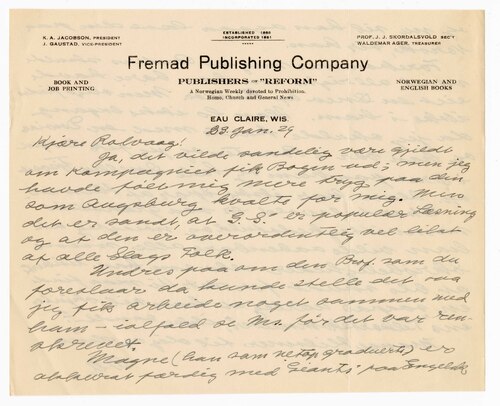 K. A. JACOBSON, PRESIDENT
J. GAUSTAD, VICE-PRESIDENT
ESTABLISHED 1886
INCORPORATED 1891
PROF. J. J. SKORDALSVOLD SEC'Y
WALDEMAR AGER, TREASURER
Fremad Publishing Company
BOOK AND
JOB PRINTING
PUBLISHERS OF "REFORM"
A Norwegian Weekly devoted to Prohibition.
Home, Church and General News
NORWEGIAN AND
ENGLISH BOOKS
EAU CLAIRE, WIS.
23 Jan. 29
Kjære Rolvaag!
Ja, det vilde sandelig være gjildt
om Kompagniet fik Bogen ud; men jeg
havde følt mig mere tryg paa din
som Augsburg kvalte for mig. Men
det er sandt, at G. S. er populær Læsning
og at den er overordentlig vel likt
af alle Slags Folk.
Undres paa om den Prof. som du
foreslaar da kunde stelle det saa
jeg fik arbeide noget sammen med
ham – ialfald se Ms. før det var ren-
skrevet.
Magne (han som netop graduerte) er
akkurat færdig med "Giants" paa Engelsk